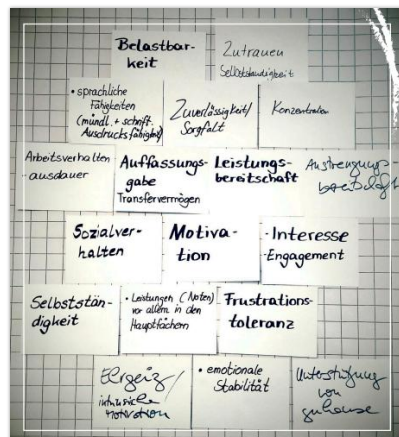 Belastbar-
keit
Zutrauen
Selbstständigkeit
• sprachliche
Fähigkeiten
(mündl. + schriftl.
Ausdrucksfähigkeit)
Zuverlässigkeit/
Sorgfalt
Konzentration
Arbeitsverhalten
-ausdauer
Auffassungs-
gabe
Transfervermögen
Leistungs-
bereitschaft
Anstrengungs-
bereitschaft
Sozialver-
halten
Motiva-
tion
-Interesse
-Engagement
Selbststän-
digkeit
• Leistungen (Noten)
vor allem in den
Hauptfächern
Frustrations-
toleranz
Ehrgeiz/
intrinsische
Motivation
• emotionale
Stabilität
Unterstützung
von
zuhause